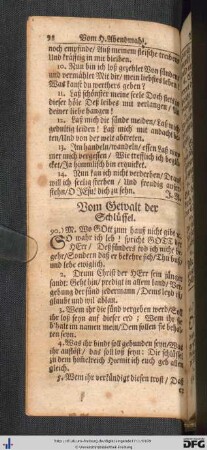 98 Vom H. Abendmahl.
noch empfinde/ Auß meinem fleische treibe
Und kräftig in mir bleiben.
10. Nun bin ich loß gezehlet Von sünden
und vermählet Mit dir/ mein liebstes leben
Was kanst du werthers geben?
11. Laß schönster meine seele Doch stets in
dieser höle Deß leibes mit verlangen/ An
deiner liebe hangen!
12. Laß mich die sünde meiden/ Laß mich
gedultig leiden! Laß mich mit andacht
Und von der welt abtreten.
13. Im handeln/wandeln/essen Laß nim-
mer mich vergessen/ Wie trefflich ich beglü-
cket/ Ja himmlisch bin erquicket.
14. Nun kan ich nicht verderben/ Drauf
will ich seelig sterben/ Und freudig auf-
stehn/ O JEsu! dich zu sehn.
Vom Gewalt der
Schlüssel.
90. M. Wo GOtt zum hauß nicht gibt
SO wahr ich leb! spricht GOTT der
HErr/ Deß sünders tod ich nicht be-
gehr/ Sondern daß er bekehre sich/ Thu buß
und lebe ewiglich.
2. Drum Christ der HErr sein jünger
sandt: Geht hin/ prediget in allem land/ Ver-
gebung der sünd jedermann/ Dems leyd ist/
glaubt und wil ablan.
3. Wem ihr die sünd vergeben werd/ Soll
ihr loß seyn auf dieser erd; Wem ihr sie
b'halt in namen mein/ Dem sollen sie behal-
ten seyn.
4. Was ihr bindt soll gebunden seyn/ Was
ihr auflößt/ das soll loß seyn: Die schlüssel
zu dem himelreich Hiemit ich euch geb allen
gleich.
5. Wem ihr verkündigt diesen trost/ Daß
DFG